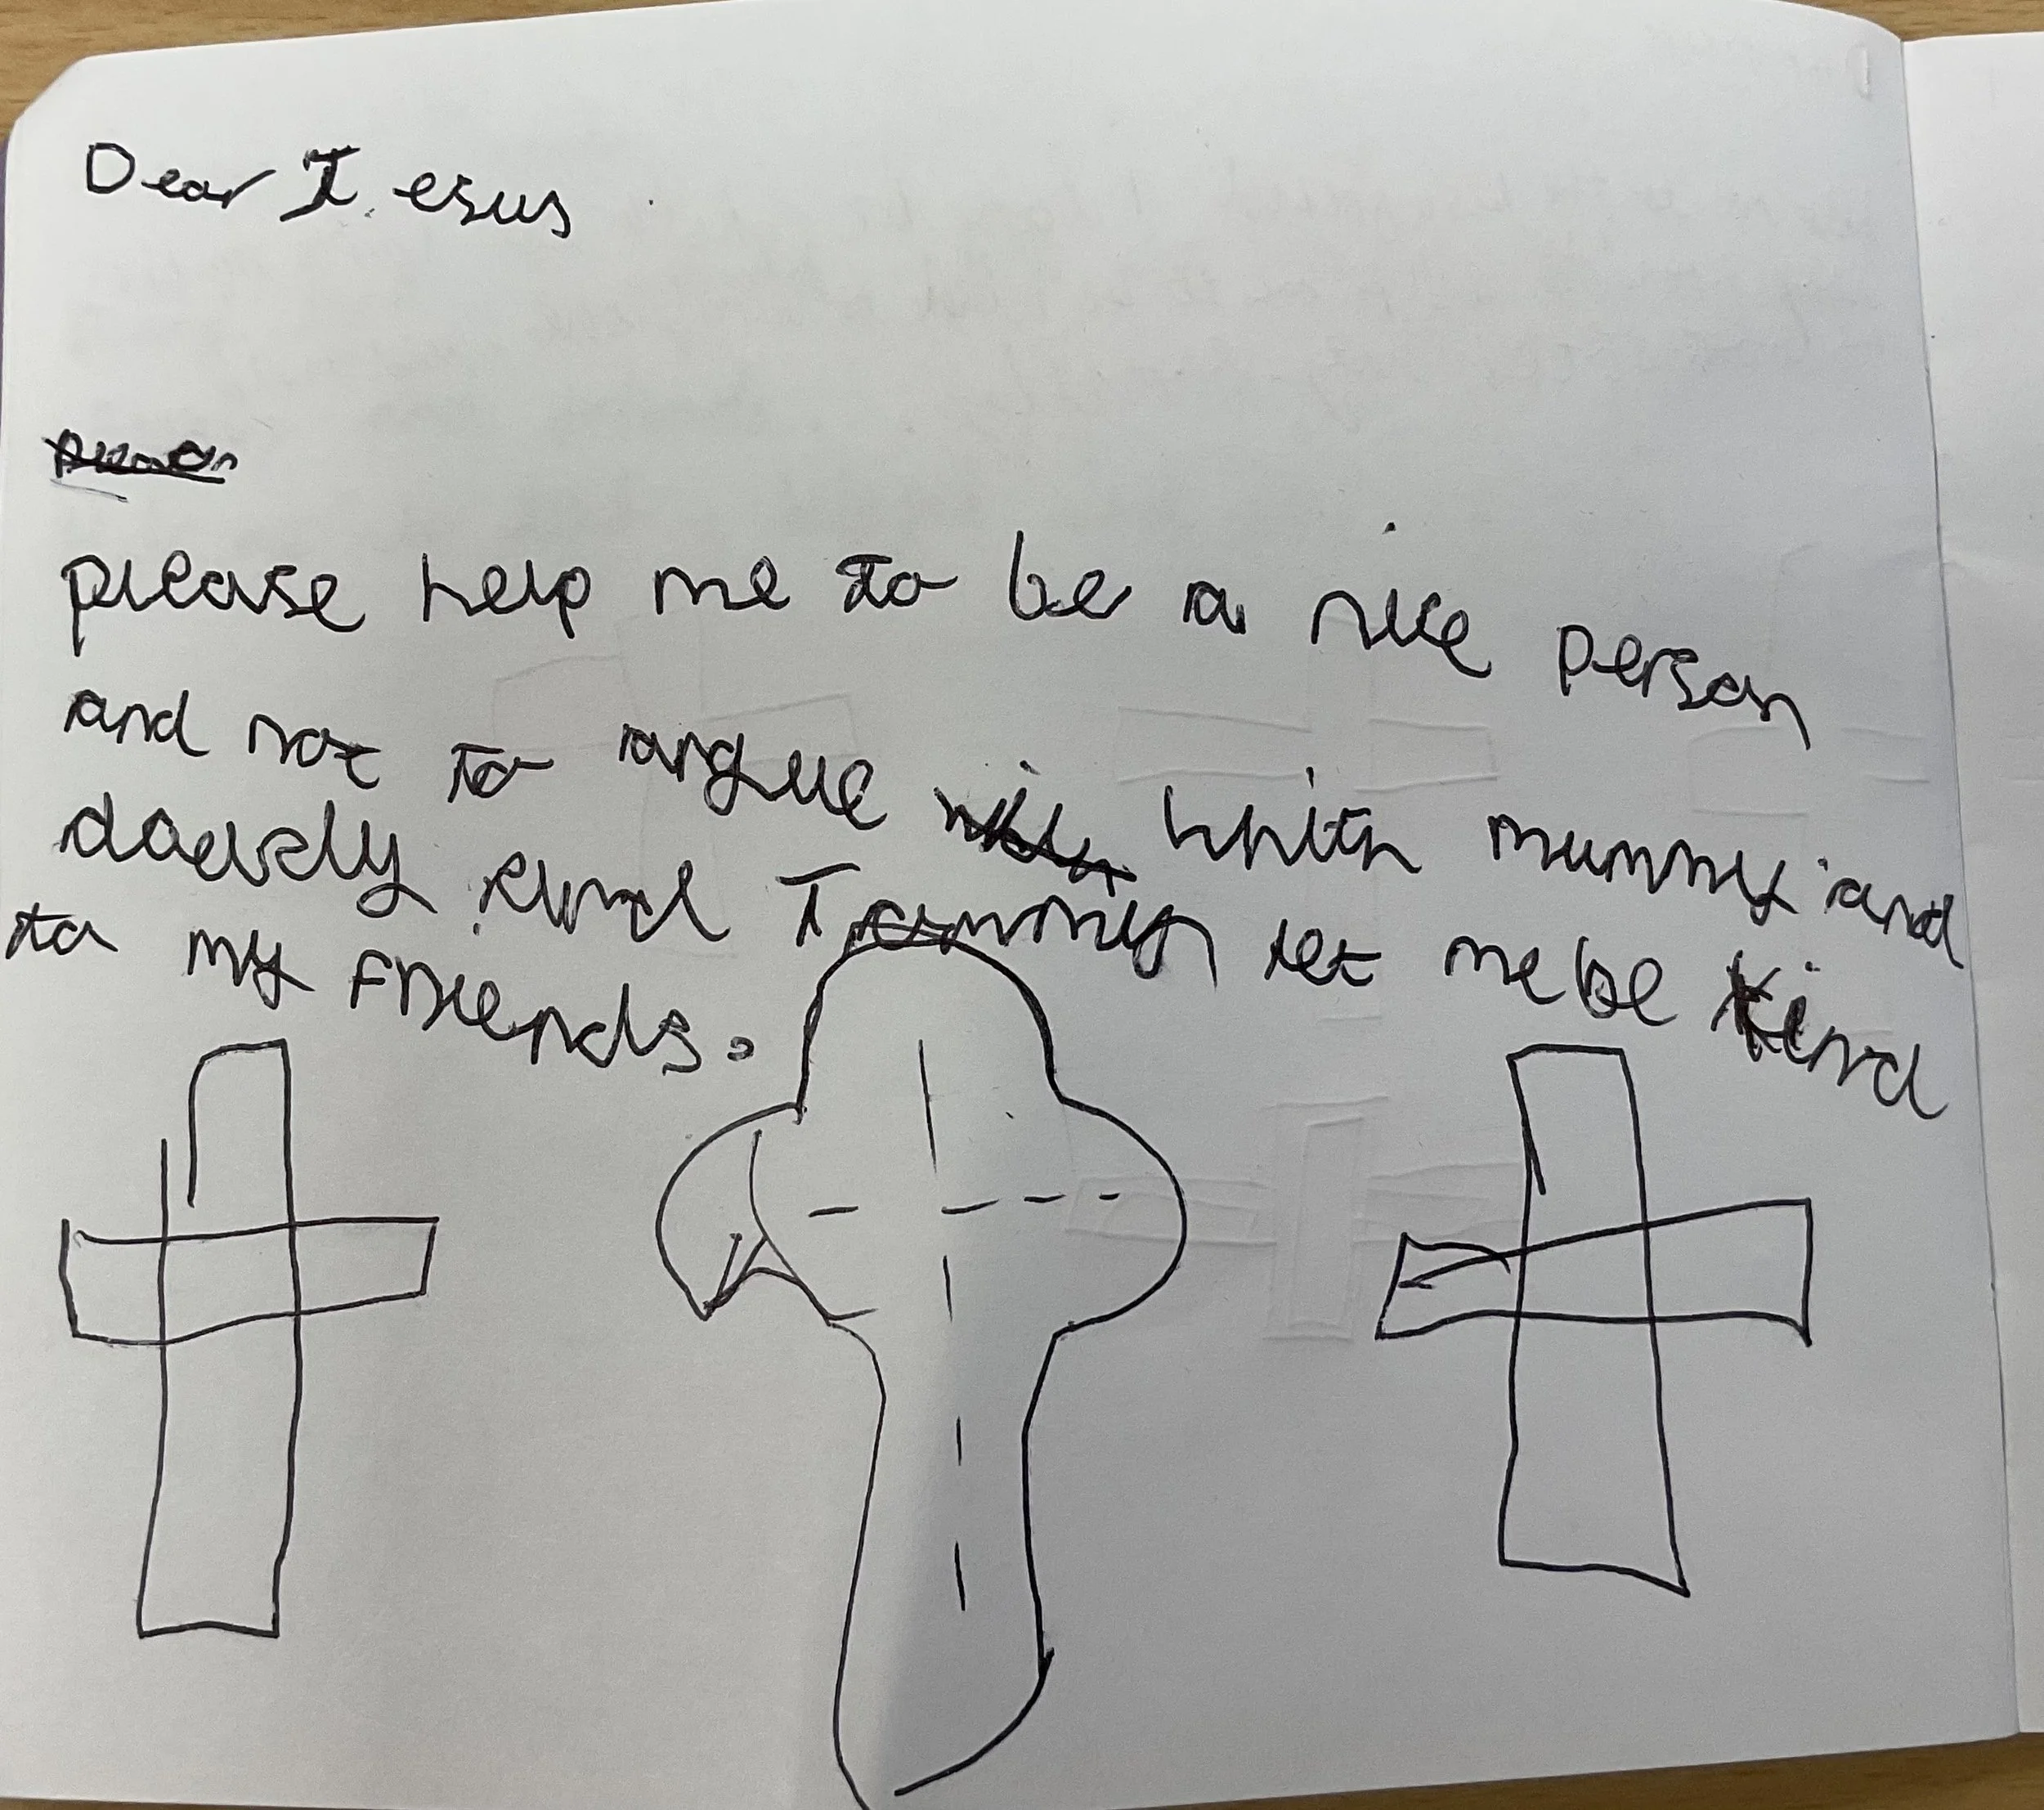 Dear Jesus
please help me to be a nice person
and not to argue with mummy and
let me be kind
to my friends.